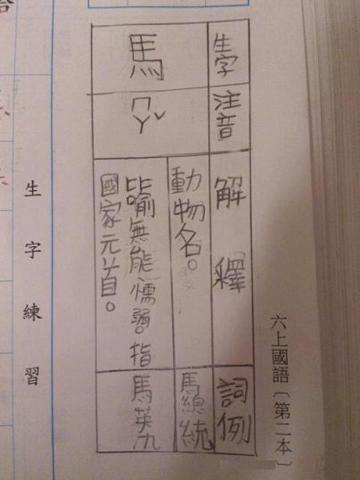 六上國語〔第二本〕
生字
注音
解釋
詞例
馬
ㄇㄚˇ
動物名。
馬總統
比喻無能懦弱。指
國家元首。
馬英九
生字練習